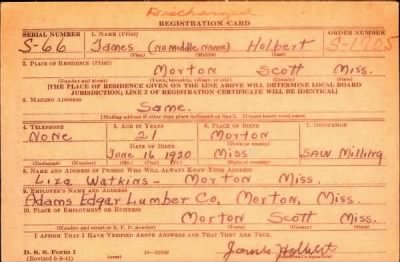 Discharged
REGISTRATION CARD
SERIAL NUMBER 1. NAME (Print) ORDER NUMBER
S-66 James (no middle name) Holbert S-1705
(First) (Middle) (Last)
2. PLACE OF RESIDENCE (Print)
Morton Scott Miss.
(Number and street) (Town, township, village, or city) (County) (State)
[THE PLACE OF RESIDENCE GIVEN ON THE LINE ABOVE WILL DETERMINE LOCAL BOARD
JURISDICTION; LINE 2 OF REGISTRATION CERTIFICATE WILL BE IDENTICAL]
3. MAILING ADDRESS
Same.
[Mailing address if other than place indicated on line 2. If same insert word same]
4. TELEPHONE 5. AGE IN YEARS 6. PLACE OF BIRTH 7. OCCUPATION
None 21 Morton
DATE OF BIRTH (Town or county)
June 16 1920 Miss Saw Milling
(Exchange) (Number) (Mo.) (Day) (Yr.) (State or country)
8. NAME AND ADDRESS OF PERSON WHO WILL ALWAYS KNOW YOUR ADDRESS
Liza Watkins - Morton Miss.
9. EMPLOYER'S NAME AND ADDRESS
Adams Edgar Lumber Co, Morton, Miss.
10. PLACE OF EMPLOYMENT OR BUSINESS
Morton Scott Miss.
(Number and street or R. F. D. number) (Town) (County) (State)
I AFFIRM THAT I HAVE VERIFIED ABOVE ANSWERS AND THAT THEY ARE TRUE.
D. S. S. Form 1 James Holbert
(Revised 6-9-41) (Registrant's signature)